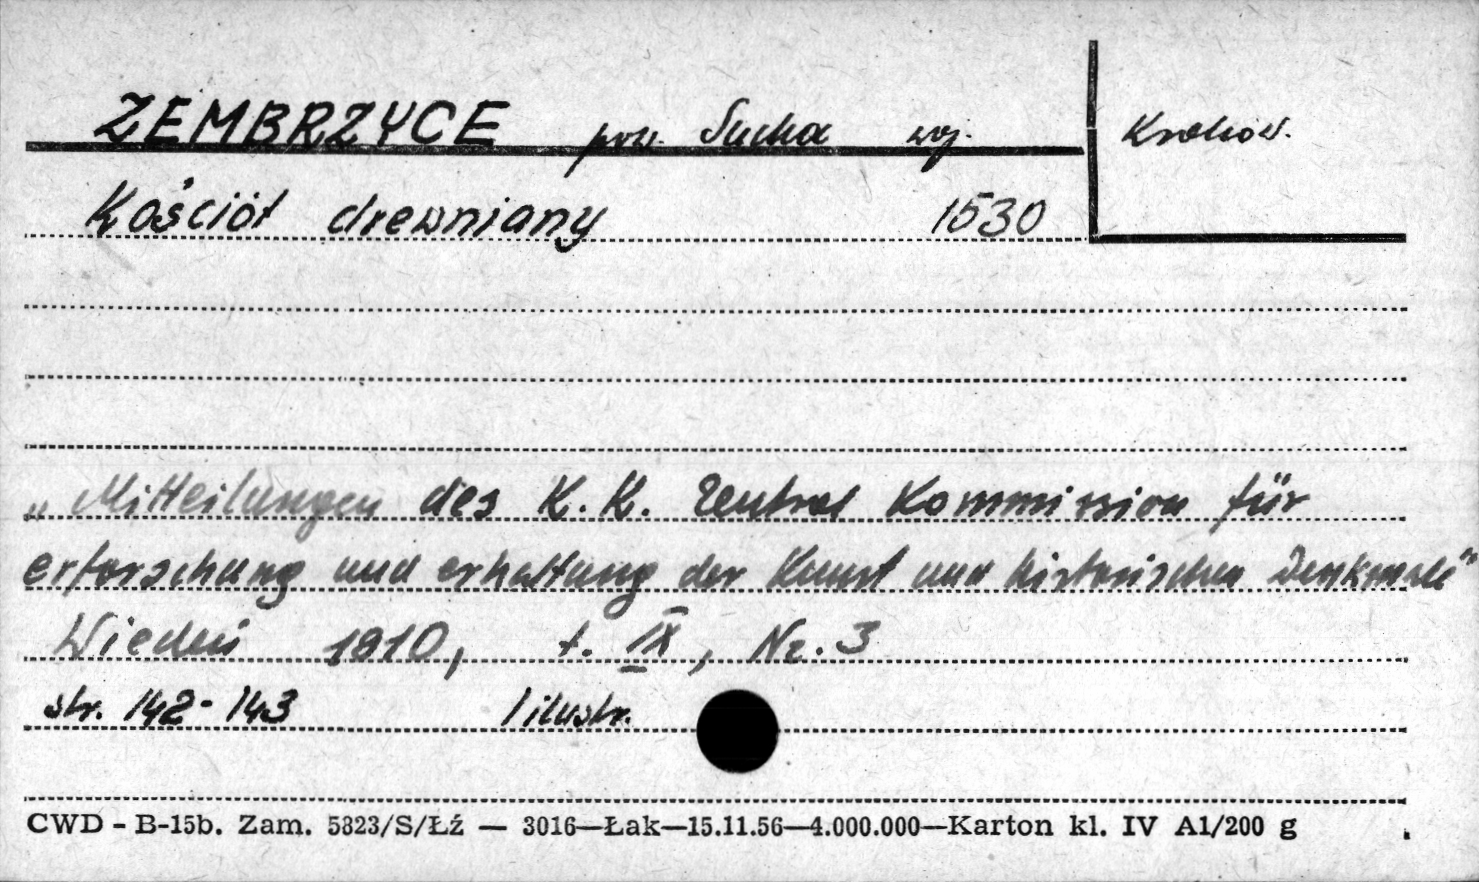 ZEMBRZYCE pow. Sucha woj. Kraków.
Kościół drewniany 1530
„Mitteilungen des K.K. Zentral Kommission für
erforschung und erhaltung der Kunst und historischen Denkmale"
Wiedeń 1910, t. IX, Nr. 3
str. 142-143 1 ilustr.
CWD - B-15b. Zam. 5823/S/Łź — 3016—Łak—15.11.56—4.000.000—Karton kl. IV A1/200 g